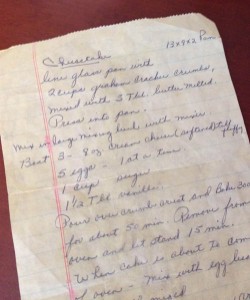 Cheesecake
13x9x2 Pan
line glass pan with
2 cups graham cracker crumbs,
mixed with 3 Tbl. butter melted.
Press into pan.
Mix in large mixing bowl with mixer
Beat 3 - 8 oz. cream cheese (soften) till fluffy
5 eggs - 1 at a time.
1 cup sugar
1 1/2 Tbl. vanilla.
Pour over crumb crust and bake 300
for about 50 min. Remove from
oven and let stand 15 min.
When cake is about to come
oven - mix with egg bea
mixed